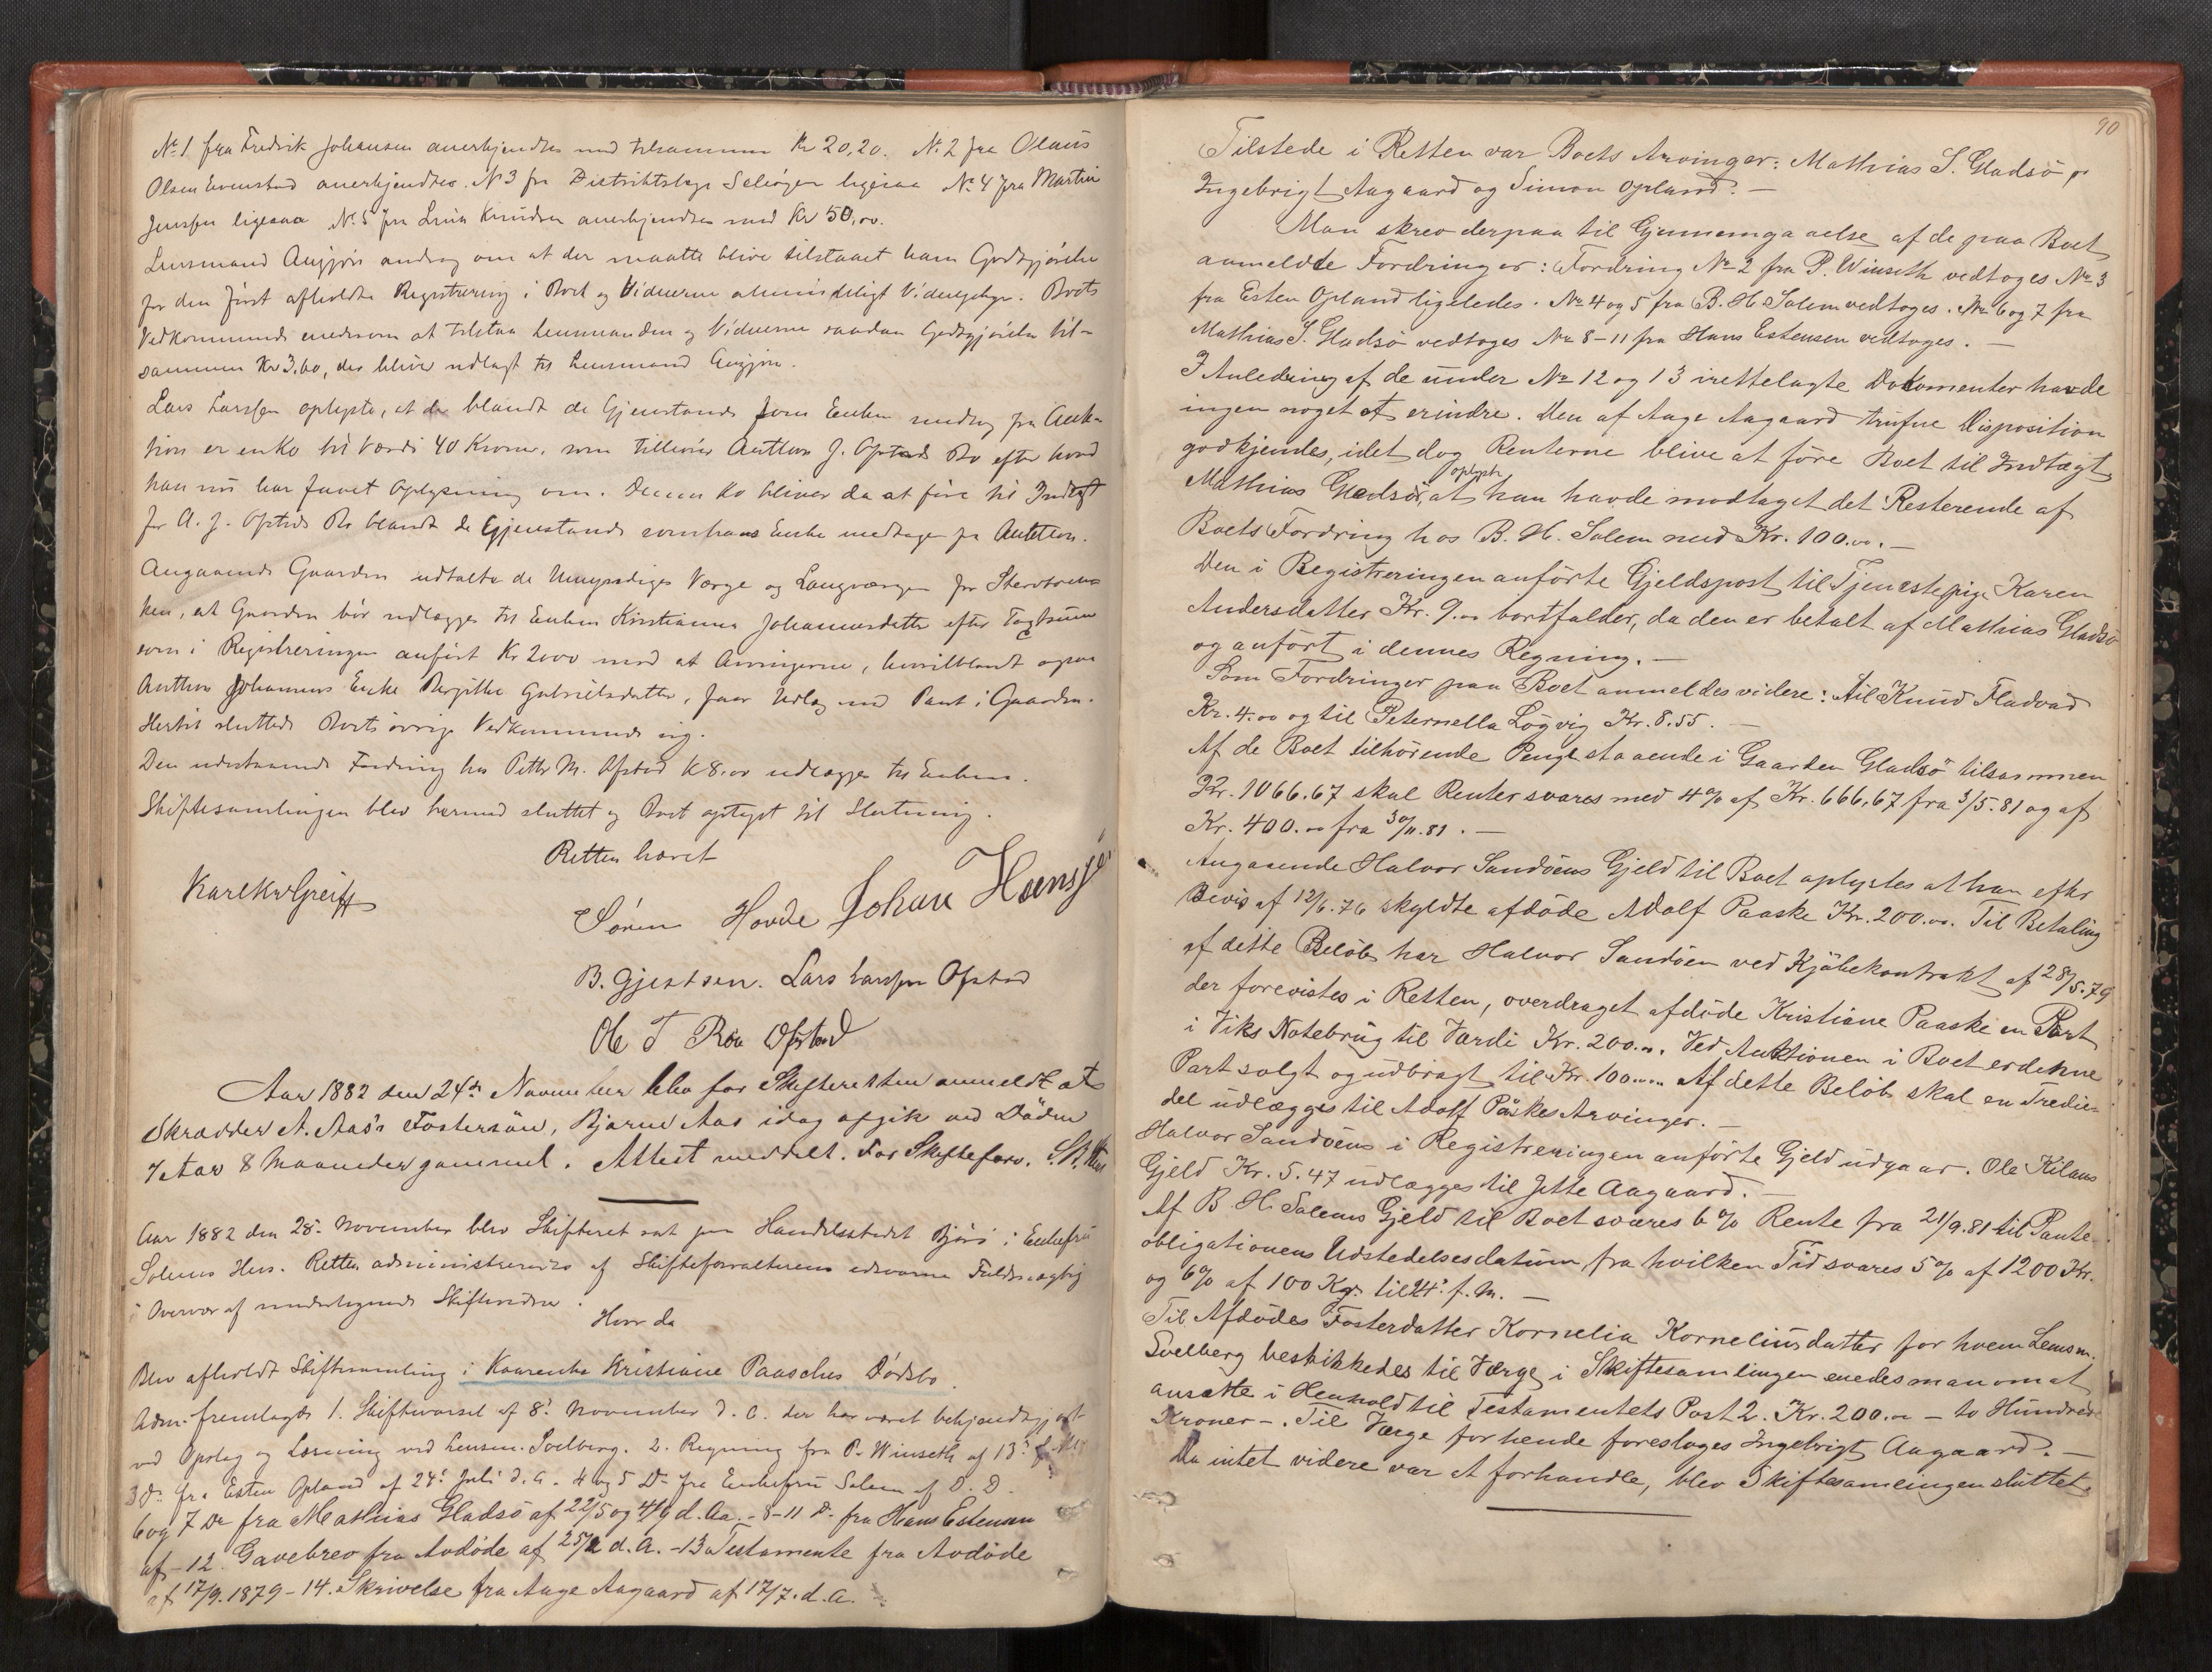 No 1 fra Fredrik Johansen anerkjendtes med tilsammen Kr 20,20. No. 2 fra Olaus
Olsen Evenstad anerkjendtes. No 3 fra Distriktslæge ligesaa No. 4 fra Martin
Jenssen ligesaa No. 5 fra Knudsen anerkjendtes med Kr 50,00.
Lensmand androg om at der maatte blive tilstaaet ham Godtgjörelse
for den först afholdte Registrering i Boet og Vidnerne almindeligt Vidnegebyr. Boets
Vedkommende enedes om at tilstaa Lensmanden og Vidnerne saadan Godtgjörelse til-
sammen Kr 3,60, der bliver udlagt til Lensmand
Lars Larssen oplyste, at der blandt de Gjenstande som Enken undtog fra Auk-
tion er en Ko til Værdi 40 Kroner, som tilhörer Anthon J. Opstads Bo efter hvad
han nu har faaet Oplysning om. Denne Ko bliver da at före til Indtægt
for A. J. Opstads Bo blandt de Gjenstande som hans Enke undtager fra Auktion.
Angaaende Gaarden udtalte de Umyndiges Værge og Laugværgen for
ken, at Gaarden bör udlægges til Enken Kristianna Johannesdatter efter Taxtsum
som i Registreringen anfört Kr 2000 mod at Arvingerne, hvoriblandt ogsaa
Anthon Johannes's Enke Bergitha Gabrielsdatter, faar Udlæg med Pant i Gaarden.
Hertil sluttede Boets övrige Vedkommende sig.
Den udestaaende Fordring hos Petter M. Opstad K 8,00 udlægges til Enken.
Skiftesamlingen blev hermed sluttet og Boet optaget til Slutning.
Retten hævet
Karl Kr Greiff
Sören Hovde Johan Hanssö
B. Gjertsen. Lars Larssen Ofstad
Ole T Röe Ofstad
Aar 1882 den 24de November blev for Skifteretten anmeldt at
Skrædder A. Aas's Fostersön, Bjarne Aas idag afgik ved Döden
7 Aar 8 Maaneder gammel. Attest meddelt. For Skifteforv.
Aar 1882 den 28. November blev Skifteret sat paa Handelsstedet Björö i Enkefru
Solems Hus. Retten administreredes af Skifteforvalterens edsvorne Fuldmægtig
i Overvær af undertegnede Skiftevidner.
Hvor da
Blev afholdt Skiftesamling i Kaarenke Kristiane Paasches Dödsbo.
Adm. fremlagde 1. Skiftevarsel af 8. November d. A. der har været bekjendtgjort
ved Opslag og Læsning ved Lensm. Solberg. 2. Regning fra P. Winseth af 13.
3 Do. fra Esten Opland af 24. Juli d. A. 4 og 5 Do fra Enkefru Solem af D. D.
6 og 7 Do fra Mathias Gladsö af 22/5 og 4/9 d. Aa. - 8-11 Do. fra Hans Estensen
af - 12. Gavebrev fra Avdöde af 25/2 d. A. - 13 Testamente fra Avdöde
af 17/9. 1879 - 14. Skrivelse fra Aage Aagaard af 17/7. d. A.
90
Tilstede i Retten var Boets Arvinger: Mathias S. Gladsö
Ingebrigt Aagaard og Simon Opland. -
Man skrev derpaa til Gjennemgaaelse af de paa Boet
anmeldte Fordringer: Fordring No 2 fra P. Winseth vedtoges No 3
fra Esten Opland ligeledes. No 4 og 5 fra B. H. Solem vedtoges. No 6 og 7 fra
Mathias S. Gladsö vedtoges No 8-11 fra Hans Estensen vedtoges. -
I Anledning af de under No 12 og 13 irettelagte Dokumenter havde
ingen noget at erindre. Den af Aage Aagaard trufne Disposition
godkjendes, idet dog Renterne blive at före Boet til Indtægt
Mathias Gladsö oplyste, at han havde modtaget det Resterende af
Boets Fordring hos B. H. Solem med Kr. 100.00. -
Den i Registreringen anförte Gjeldspost til Tjenestepige Karen
Andersdatter Kr. 9.00 bortfalder, da den er betalt af Mathias Gladsö
og anfört i dennes Regning. -
Som Fordringer paa Boet anmeldes videre: til Knud Fladvad
Kr. 4.00 og til Peternella Lögvig Kr. 8.55. -
Af de Boet tilhörende Penge staaende i Gaarden Gladsö tilsammen
Kr. 1066.67 skal Renter svares med 4 % af Kr. 666,67 fra 3/5.81 og af
Kr. 400.00 fra 30/11.81. -
Angaaende Halvor Sandöens Gjeld til Boet oplystes at han efter
Bevis af 12/6.76 skyldte afdöde Adolf Paaske Kr. 200.00. Til Betaling
af dette Belöb har Halvor Sandöen ved Kjöbekontrakt af 28/5.79
der forevistes i Retten, overdraget afdöde Kristiane Paaske en Part
i Viks Notebrug til Værdi Kr. 200.00. Ved Auktionen i Boet er denne
Part solgt og udbragt til Kr. 100.00. Af dette Belöb skal en Tredie-
del udlægges til Adolf Påskes Arvinger. -
Halvor Sandöens i Registreringen anförte Gjeld udgaar. Ole Kilans
Gjeld Kr. 5.47 udlægges til Jette Aagaard. -
Af B. H. Solems Gjeld til Boet svares 6 % Rente fra 21/9.81 til Pante-
obligationens Udstedelsesdatum, fra hvilken Tid svares 5 % af 1200 Kr.
og 6 % af 100 Kr. til 24. f. M. -
Til Afdödes Fosterdatter Kornelia Korneliusdatter for hvem Lensm.
Solberg beskikkedes til Værge i Skiftesamlingen enedes man om at
ansætte i Henhold til Testamentets Post 2. Kr. 200.00 - to Hundrede
Kroner -. Til Værge for hende foresloges Ingebrigt Aagaard. -
Da intet videre var at forhandle, blev Skiftesamlingen sluttet.